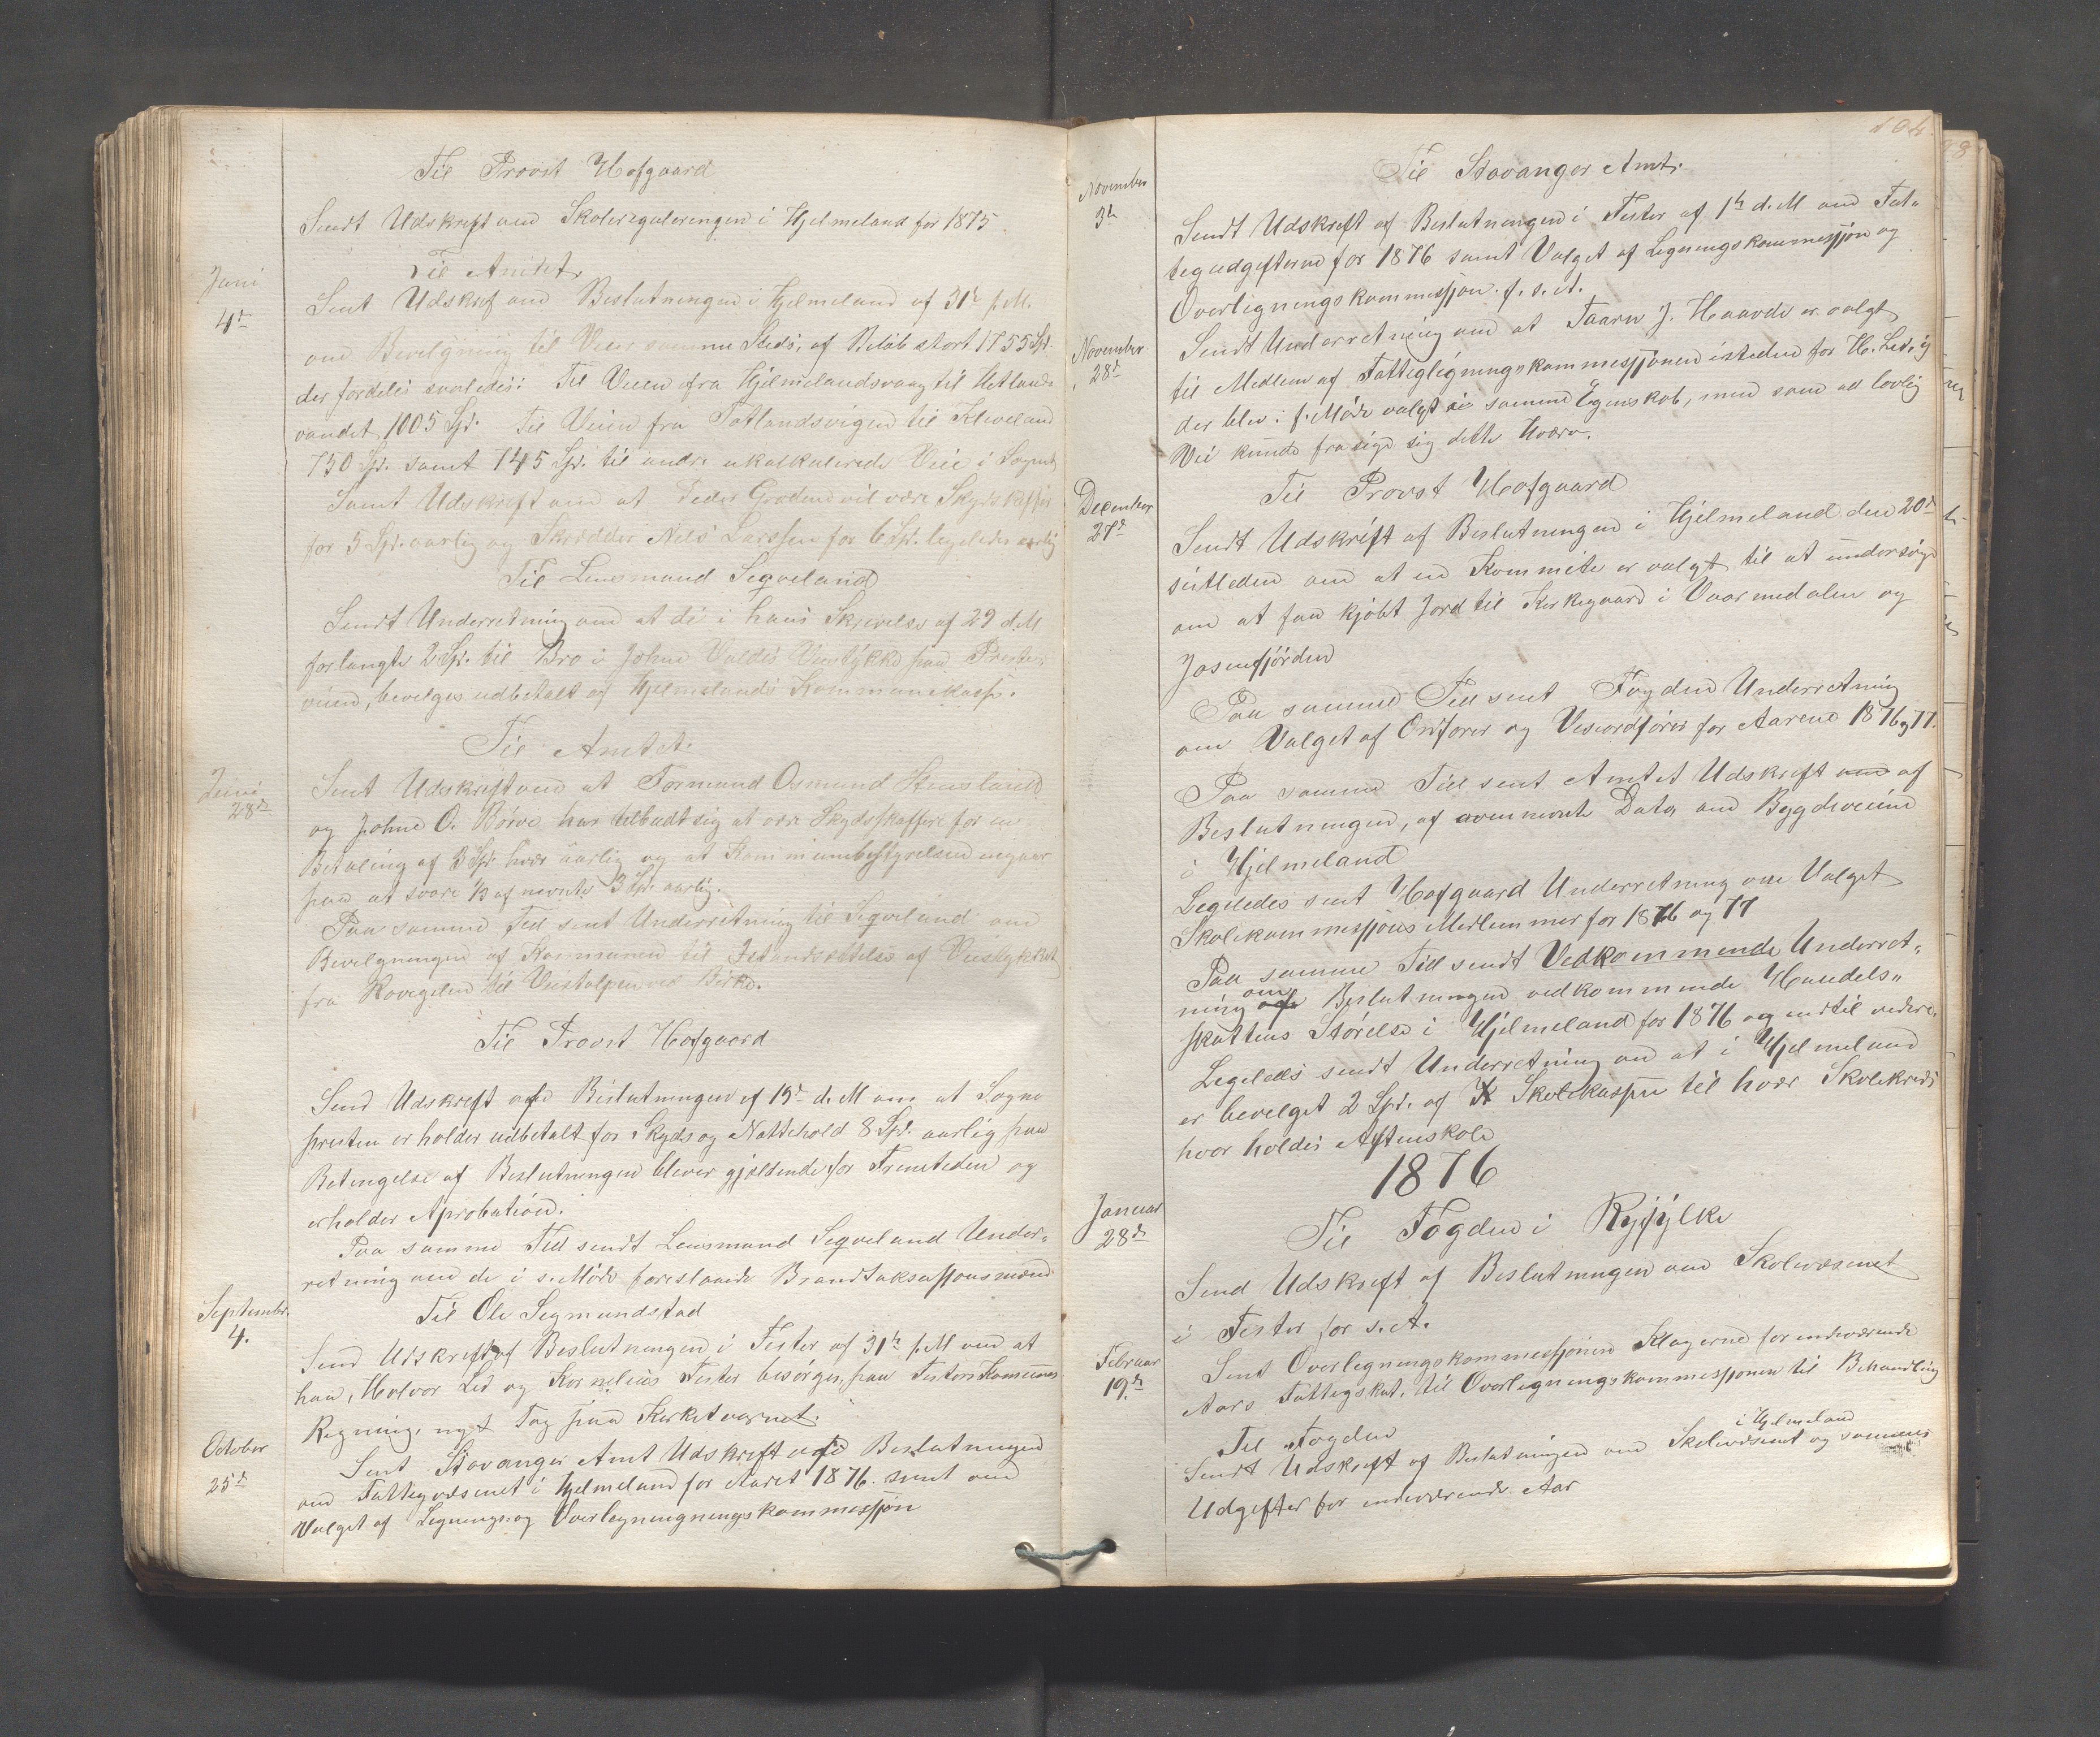 Til Provst Hofgaard
Sendt Udskreft om Skolereguleringen i Hjelmeland for 1875
Til Amtet
Juni
4de
Sent Udskref om Beslutningen i Hjelmeland af 31te f. M.
om Bevelgning til Veier samme Steds, af Beløb stort 1755 Spd.
der fordeles saaledes: Til Veien fra Hjelmelandsvaag til Hetlands
vandet 1005 Spd. Til Veien fra Tøtlandsvigen til Kleveland
750 Spd. samt 145 Spd. til andre ukalkulerede Veie i Sognet
Samt Udskreft om at Peder Groden vil være Skydskaffer
for 5 Spd. aarlig og Skredder Nels Larssen for 6 Spd. legeledes aarlig
Til Lensmand Seqveland
Sendt Underretning om at de i hans Skrevelse af 29 d. M
forlangte 2 Spd. til Bro i Johne Valdes Veistykke paa Preste
veien, bevelges udbetalt af Hjelmelands Kommunekasse.
Til Amtet.
Juni
28de
Sent Udskreft om at Formand Osmund Stensland
og Johne O. Børve har tilbudt sig at være Skydsskaffere for en
Betaling af 3 Spd. hver aarlig og at Kommunebestyrelsen engaar
paa at svare 1/3 af nevnte 3 Spd. aarlig.
Paa samme Ted sent Underretning til Seqveland om
Bevelgningen af Kommunen til Istandsettelse af Veistykket
fra Rovegelen til Veistolpen ved Birke.
Til Provst Hofgaard
Send Udskreft af Beslutningen af 19de d. M om at Sogne
presten erholder udbetalt for Skyds og Nattehold 8 Spd. aarlig paa
Betengelse af Beslutningen blever gjældende for Fremteden og
erholder Aprobation.
Paa samme Ted sendt Lensmand Seqveland Under-
retning om de i s. Møde foreslaaede Brandtaksasjonsmænd
Til Ole Segmundstad
September
4.
Send Udskreft af Beslutningen i Fister af 31te f. M om at
han, Halvor Led og Kornelius Fister besørger, paa Fisters Komunes
Regning, nyt Tag paa Kerketaarnet.
October
25de
Sent Stavanger Amt Udskreft af Beslutningen
om Fattegvæsenet i Hjelmeland for Aaret 1876. samt om
Valget af Legnengs. og Overlegnengnengskommessjon
104.
Til Stavanger Amt.
November
3de
Sendt Udskreft af Beslutningen i Fister af 1te d. M om Fat-
tegudgefterne for 1876 samt Valget af Legnengskommessjon og
Overlegnengskommessjon f. s. A.
November
28de
Sendt Underretning om at Taarn J. Haavde er valgt
til Medlem af Fatteglegnengskommessjonen isteden for H. Led, ig
der blev i f. Møde valgt i samme Egenskab, men som ad lovlig
Vei kunde frasige sig dette Hværv.
Til Provst Hofgaard
December
27de
Sendt Udskrift af Beslutningen i Hjelmeland den 20de
sistleden om at en Kommite er valgt til at undersøge
om at faa kjøbt Jord til Kerkegaard i Vaarmedalen og
Jøsenfjorden
Paa samme Ted sent Fogden Underretning
om Valget af Orsforer og Veseordfører for Aarene 1876 og 77.
Paa samme Tid sent Amtet Udskreft om af
Beslutningen, af ovennevnte Data om Bygdeveiene
i Hjelmeland
Legeledes sent Hofgaard Underretning om Valget
Skolekommessjons Medlemmer for 1876 og 77
Paa samme Tid sendt Vedkommende Underret-
ning om Beslutningen vedkommende Handels-
skattens Størelse i Hjelmeland for 1876 og indtil videre.
Legeledes sendt Underretning om at i Hjelmeland
er bevelget 2 Spd. af Skolekassen til hver Skolekreds
hvor holdes Aftenskole
1876
Til Fogden i Ryfylke
Januar
28de
Send Udskreft af Beslutningen om Skolevæsenet
i Fister for s. A.
Februar
19de
Sent Overlegnengskommessjonen Klagerne for indeværende
Aars Fattegskat, til Overlegnengskommessjonen til Behandling
Til Fogden
Sendt Udskreft af Beslutningen om Skolevæsenet i Hjelmeland og sammes
Udgefter for indeværende Aar